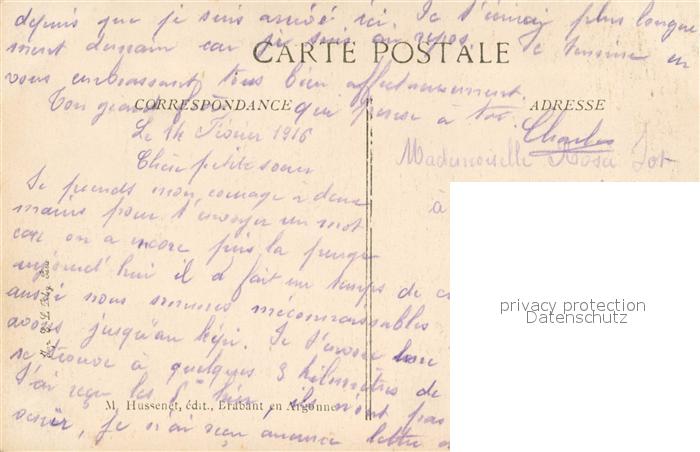 depuis que je suis arrivé ici. Je t'enverrai plus longue
ment demain car je suis au repos. Je termine en
CARTE POSTALE
vous embrassant tous bien affectueusement.
Ton grand frère que pense à toi.
CORRESPONDANCE
ADRESSE
Charles
Le 14 Février 1916
Mademoiselle Rosa Jot
Chère petite soeur
à
Je prends mon courage à deux
mains pour t'envoyer un mot
car on a encore pris la
aujourd'hui il a fait un temps de
aussi nous sommes méconnaissables
avons jusqu'au képi. Je t'envoie
se trouve à quelques 3 kilomètres de
J'ai reçu les hier, ils n'ont pas
M. Hussenet, édit., Brabant en Argonne
je n'ai reçu aucune lettre
privacy protection
Datenschutz